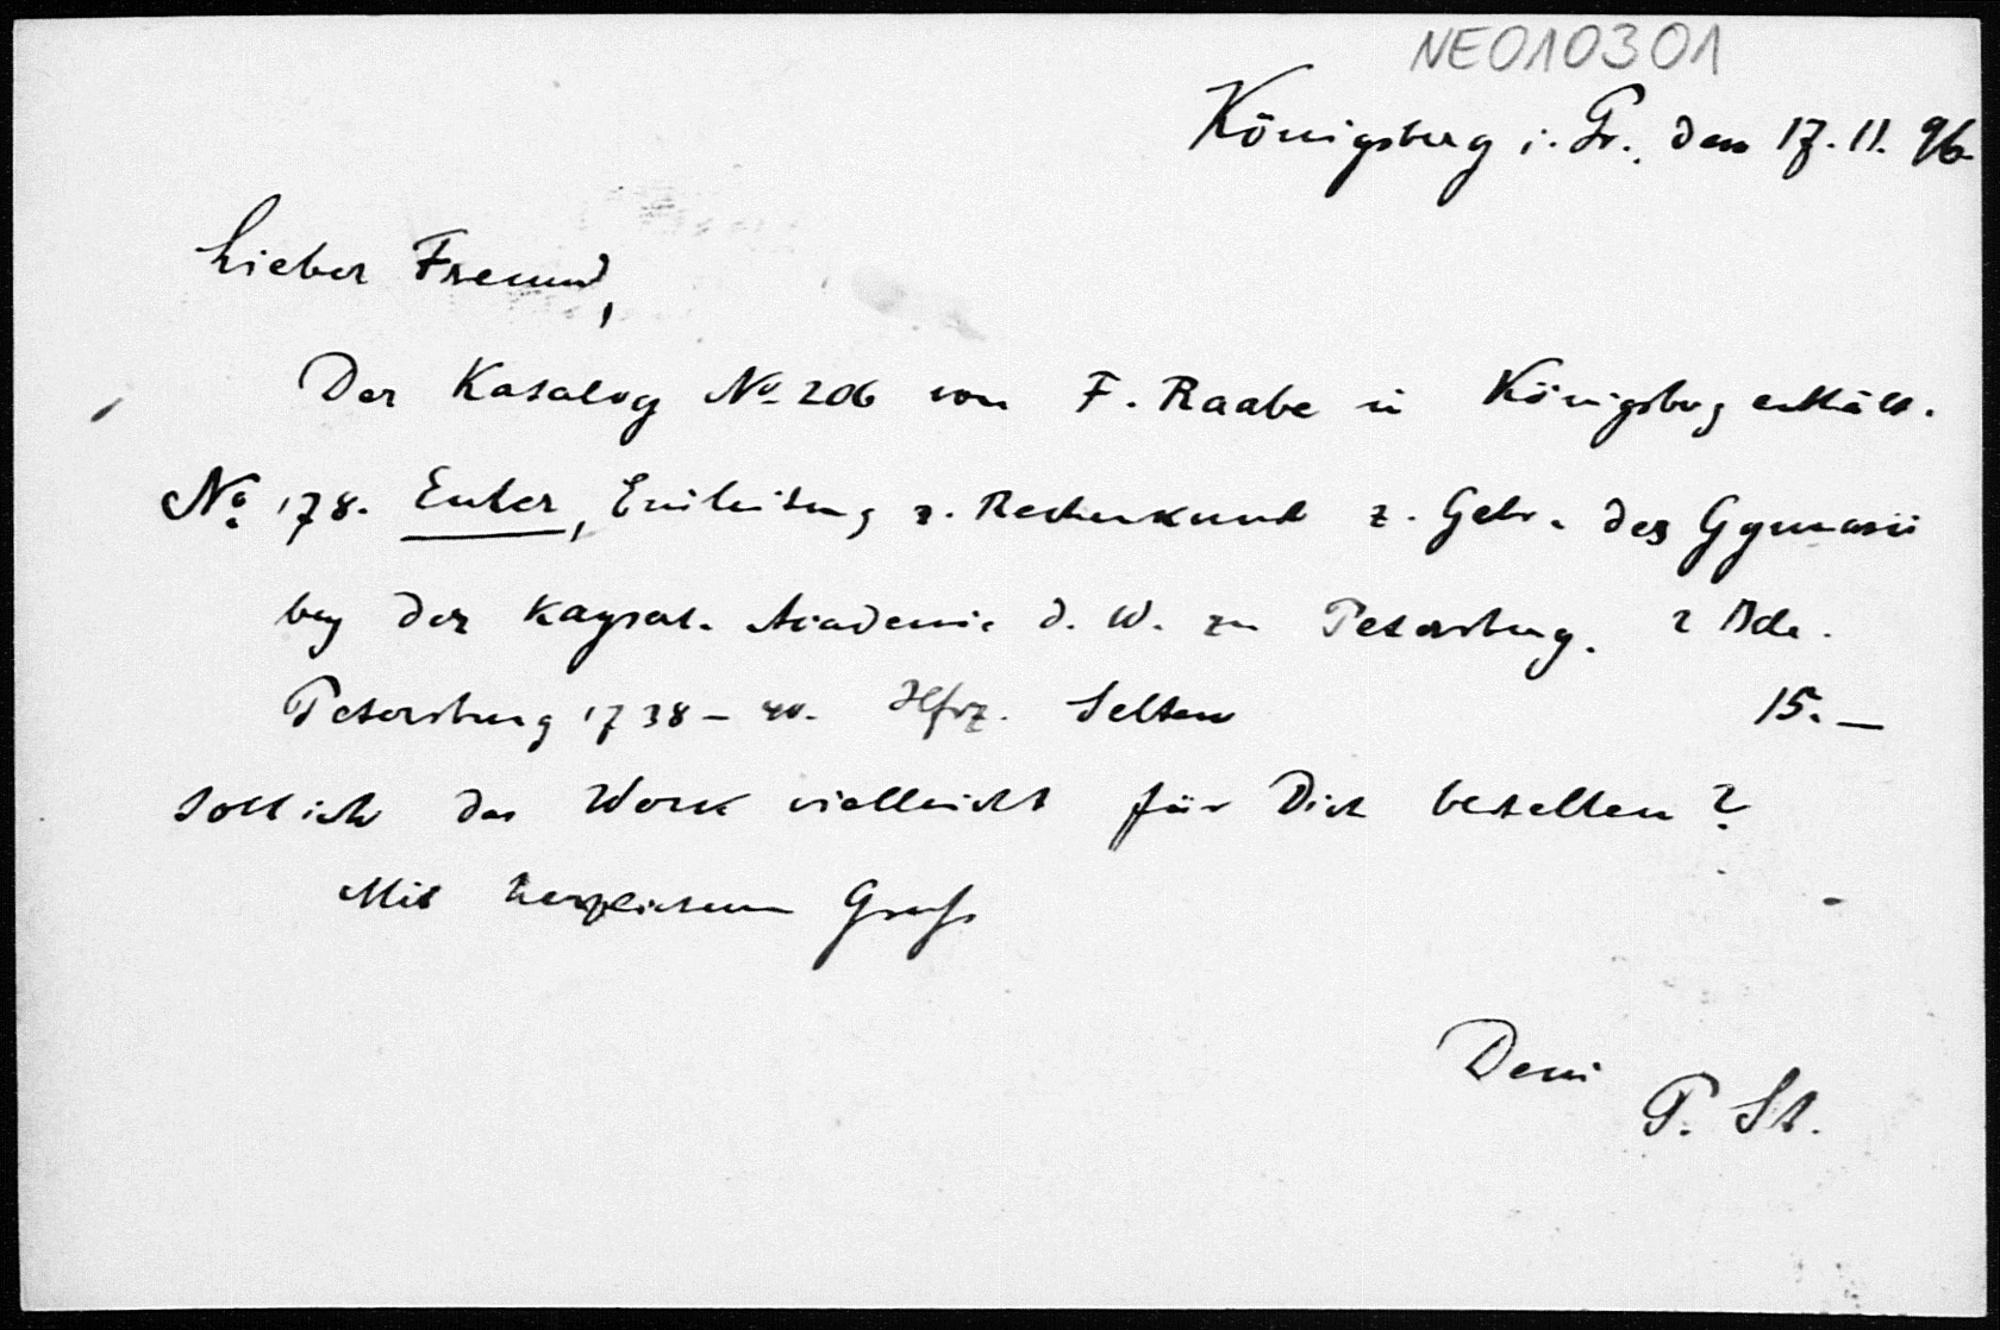 NE010301
Königsberg i. Pr., den 17. 11. 96.
Lieber Freund,
Der Katalog No 206 von F. Raabe in Königsberg enthält.
No 178. Euler, Einleitung z. Rechenkunst z. Gebr. des Gymnasii
bey der Kaysel. Academie d. W. zu Petersburg. 2 Bde.
Petersburg 1738 – 40. Hfrz. Selten 15. —
Soll ich das Werk vielleicht für Dich bestellen?
Mit herzlichem Gruß
Dein
P. St.